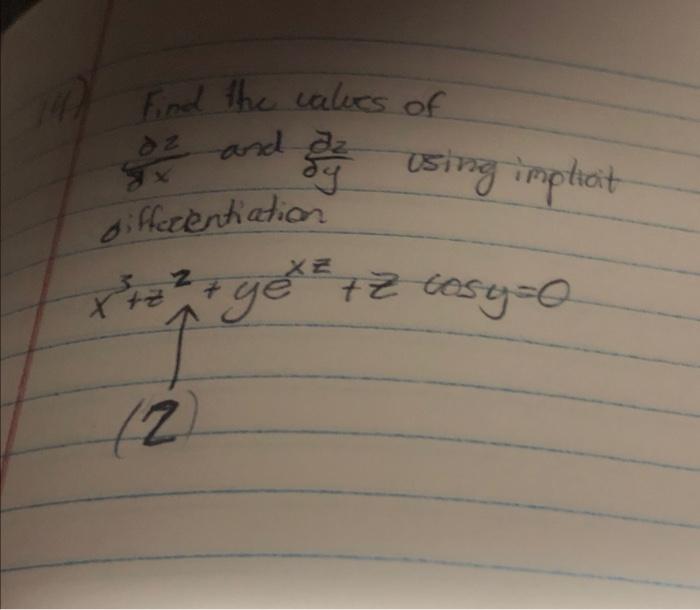 14) Find the values of
∂z/∂x and ∂z/∂y using implicit
differentiation
x³+z²+ye^xz+z cosy=0
(2)